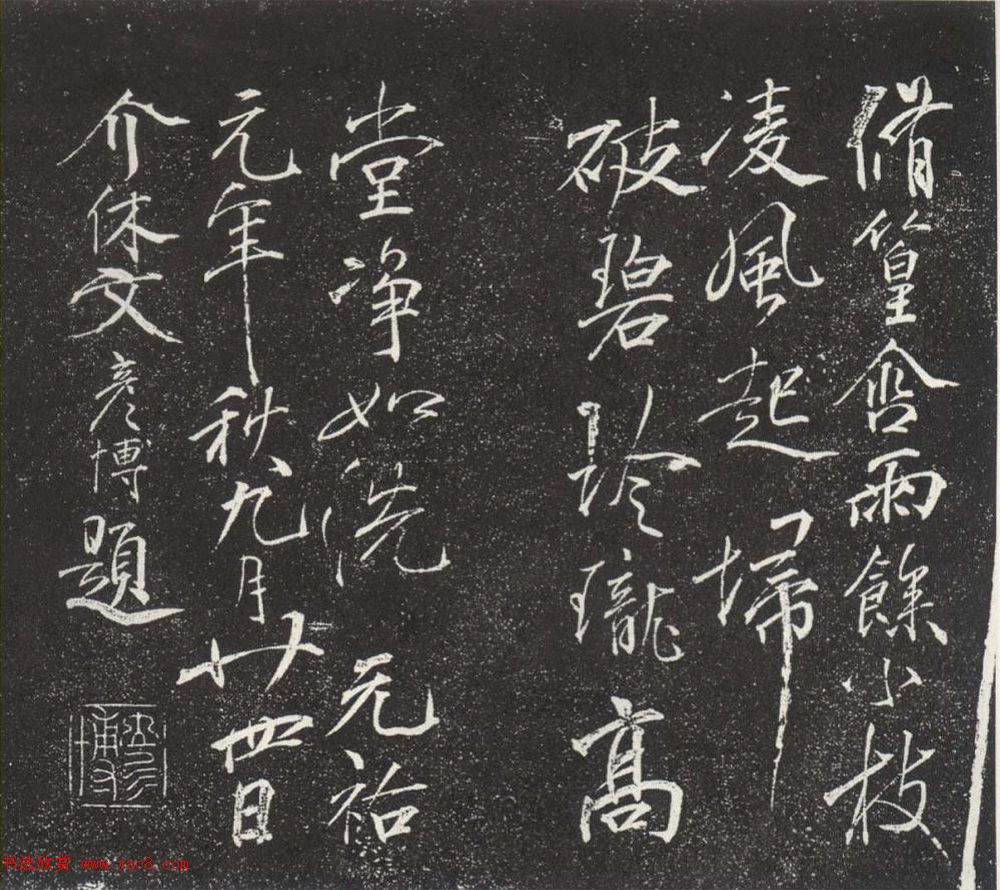 脩篁含雨餘小枝
凌風起掃
破碧玲瓏高
堂净如洗 元祐
元年秋九月廿四日
介休文彦博題
彦博
书法欣赏 www.yac8.com